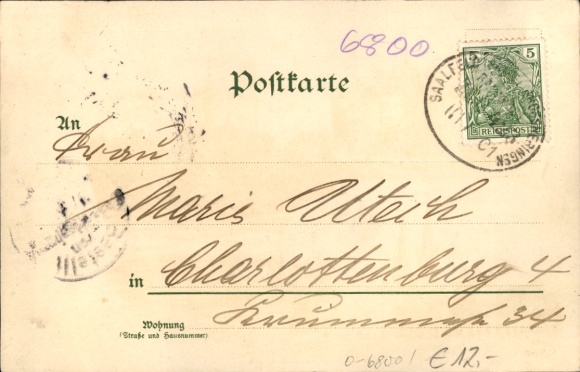 6800.
Postkarte
5
REICHSPOST
SAALFELD
An
Frau
Marie Utech
in Charlottenburg 4
Krummestr 34
Wohnung
(Straße und Hausnummer)
0-6800/ €12,-